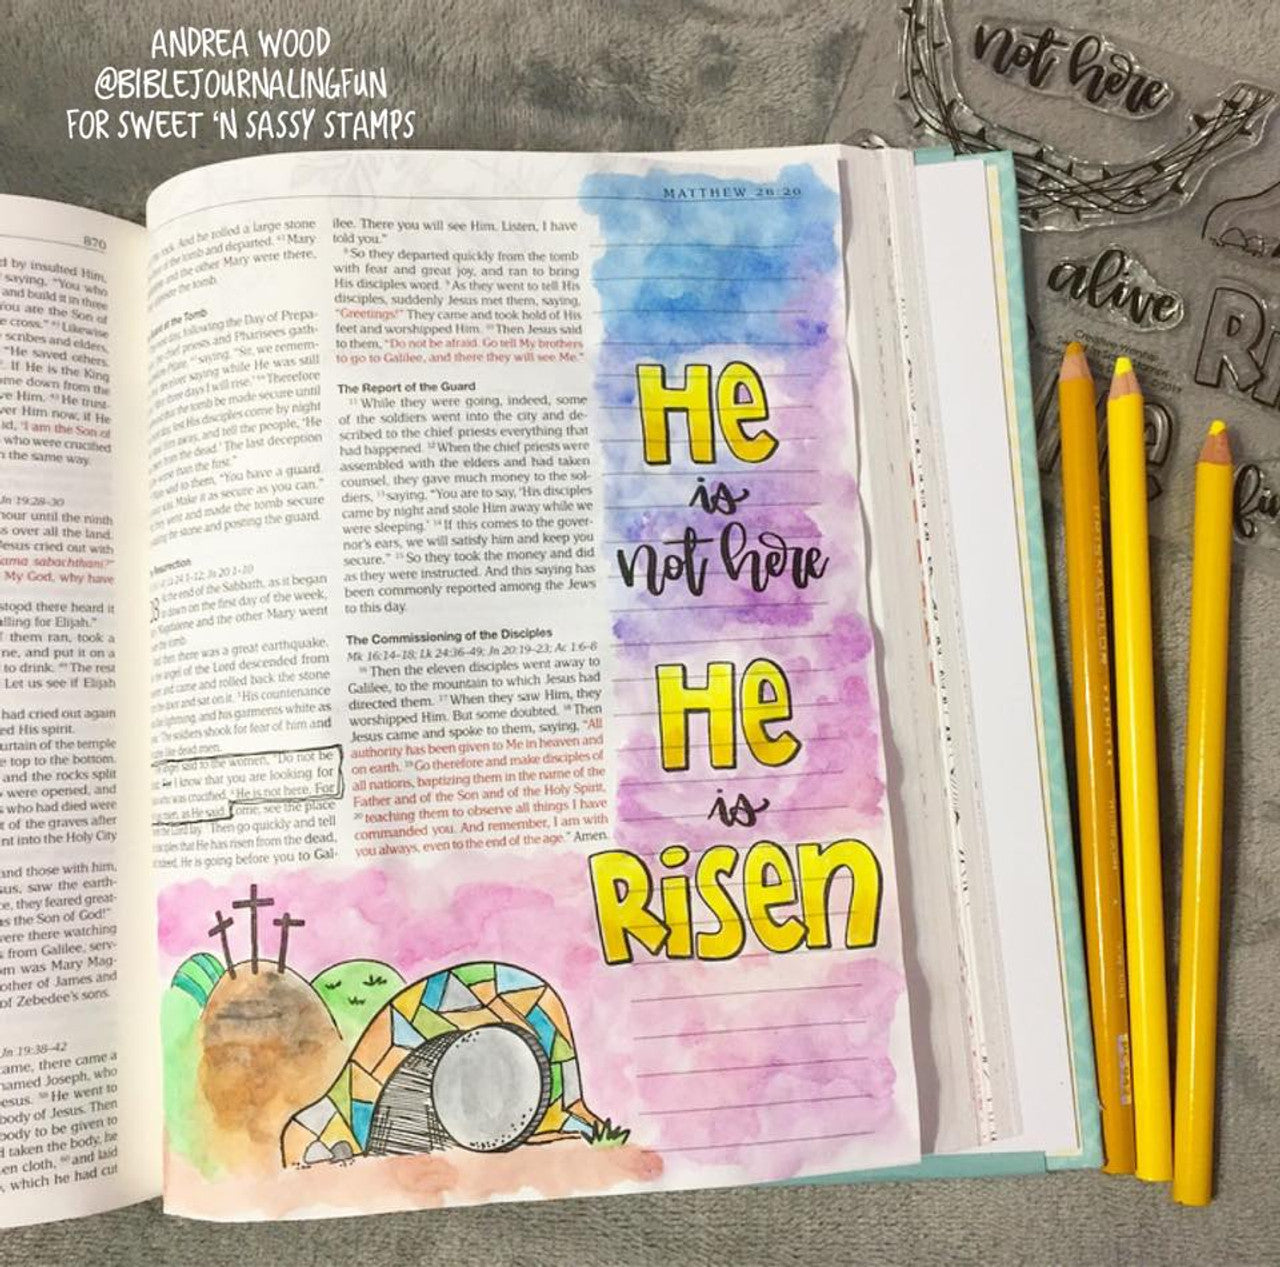 ANDREA WOOD
@BIBLEJOURNALINGFUN
FOR SWEET 'N SASSY STAMPS
870
d by insulted Him,
saying, "You who
and build it in three
You are the Son of
e cross." Likewise
scribes and elders,
"He saved others,
If He is the King
me down from the
ve Him. He trust-
ver Him now, if He
id, 'I am the Son of
who were crucified
n the same way.
Jn 19:28–30
hour until the ninth
s over all the land.
Jesus cried out with
ama sabachthani?"
My God, why have
stood there heard it
alling for Elijah."
them ran, took a
ne, and put it on a
to drink. The rest
Let us see if Elijah
had cried out again
ed His spirit.
urtain of the temple
e top to the bottom.
and the rocks split
were opened, and
who had died were
t of the graves after
nt into the Holy City
and those with him,
sus, saw the earth-
ce, they feared great-
as the Son of God!"
were there watching
from Galilee, serv-
om was Mary Mag-
other of James and
of Zebedee's sons.
Jn 19:38–42
came, there came a
named Joseph, who
esus. He went to
body of Jesus. Then
body to be given to
taken the body, he
en cloth, and laid
, which he had cut
rock. And he rolled a large stone
tomb and departed. Mary
and the other Mary were there,
opposite the tomb.
at the Tomb
day, following the Day of Prepa-
chief priests and Pharisees gath-
saying, "Sir, we remem-
deceiver saying while He was still
three days I will rise.' Therefore
the tomb be made secure until
lest His disciples come by night
Him away, and tell the people, 'He
from the dead.' The last deception
worse than the first."
to them, "You have a guard.
Make it as secure as you can."
went and made the tomb secure
the stone and posting the guard.
Resurrection
24:1–12; Jn 20:1–10
28 the end of the Sabbath, as it began
to dawn on the first day of the week,
Magdalene and the other Mary went
the tomb.
then there was a great earthquake,
angel of the Lord descended from
and came and rolled back the stone
the door and sat on it. His countenance
lightning, and his garments white as
The soldiers shook for fear of him and
like dead men.
angel said to the women, "Do not be
I know that you are looking for
who was crucified. He is not here. For
risen, as He said. Come, see the place
the Lord lay. Then go quickly and tell
disciples that He has risen from the dead,
indeed, He is going before you to Gal-
ilee. There you will see Him. Listen, I have
told you."
8 So they departed quickly from the tomb
with fear and great joy, and ran to bring
His disciples word. 9 As they went to tell His
disciples, suddenly Jesus met them, saying,
"Greetings!" They came and took hold of His
feet and worshipped Him. 10 Then Jesus said
to them, "Do not be afraid. Go tell My brothers
to go to Galilee, and there they will see Me."
The Report of the Guard
11 While they were going, indeed, some
of the soldiers went into the city and de-
scribed to the chief priests everything that
had happened. 12 When the chief priests were
assembled with the elders and had taken
counsel, they gave much money to the sol-
diers, 13 saying, "You are to say, 'His disciples
came by night and stole Him away while we
were sleeping.' 14 If this comes to the gover-
nor's ears, we will satisfy him and keep you
secure." 15 So they took the money and did
as they were instructed. And this saying has
been commonly reported among the Jews
to this day.
The Commissioning of the Disciples
Mk 16:14–18; Lk 24:36–49; Jn 20:19–23; Ac 1:6–8
16 Then the eleven disciples went away to
Galilee, to the mountain to which Jesus had
directed them. 17 When they saw Him, they
worshipped Him. But some doubted. 18 Then
Jesus came and spoke to them, saying, "All
authority has been given to Me in heaven and
on earth. 19 Go therefore and make disciples of
all nations, baptizing them in the name of the
Father and of the Son and of the Holy Spirit,
20 teaching them to observe all things I have
commanded you. And remember, I am with
you always, even to the end of the age." Amen.
MATTHEW 28:20
He
is
not here
He
is
Risen
not here
alive